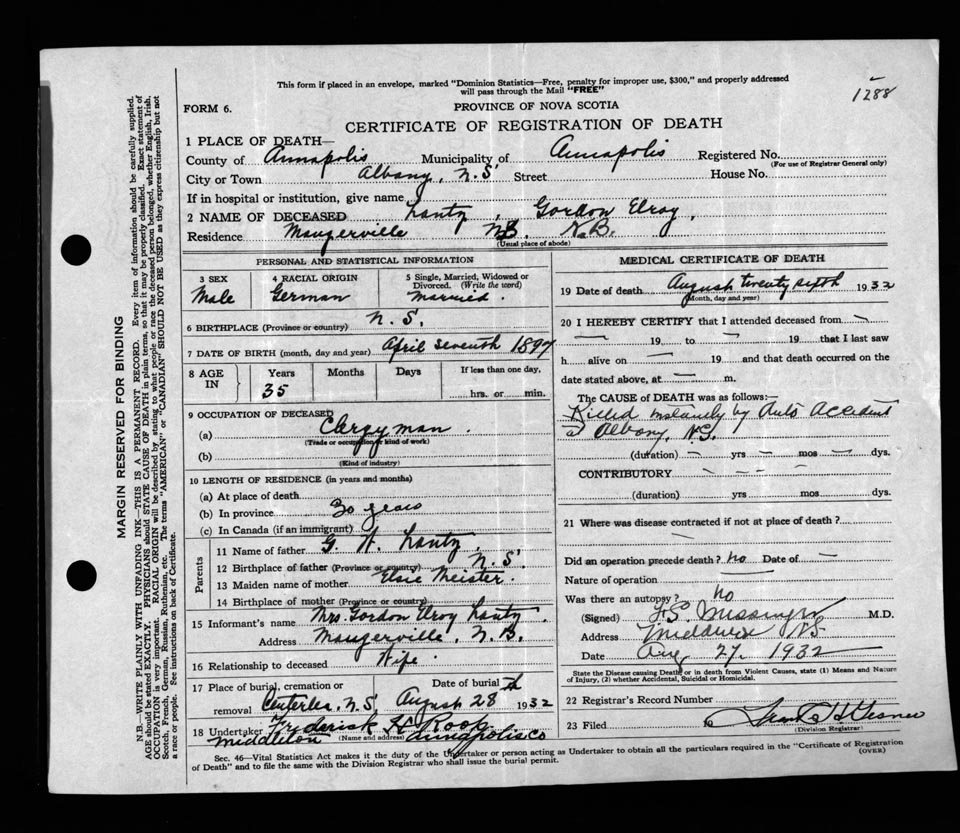 This form if placed in an envelope, marked "Dominion Statistics—Free, penalty for improper use, $300," and properly addressed
will pass through the Mail "FREE"
1288
FORM 6.
PROVINCE OF NOVA SCOTIA
CERTIFICATE OF REGISTRATION OF DEATH
1 PLACE OF DEATH—
County of Annapolis Municipality of Annapolis Registered No.
(For use of Registrar General only)
City or Town Albany, N.S. Street House No.
If in hospital or institution, give name
2 NAME OF DECEASED Lantz, Gordon Elroy,
Residence Maugerville N.B. N.B.
(Usual place of abode)
PERSONAL AND STATISTICAL INFORMATION
3 SEX 4 RACIAL ORIGIN 5 Single, Married, Widowed or
Divorced. (Write the word)
Male German Married.
6 BIRTHPLACE (Province or country) N.S.
7 DATE OF BIRTH (month, day and year) April seventh 1897
8 AGE IN Years Months Days If less than one day,
35 hrs. or min.
9 OCCUPATION OF DECEASED
(a) Clergyman.
(Trade or occupation or kind of work)
(b)
(Kind of industry)
10 LENGTH OF RESIDENCE (in years and months)
(a) At place of death
(b) In province 30 years
(c) In Canada (if an immigrant)
Parents
11 Name of father G. W. Lantz,
12 Birthplace of father (Province or country) N.S.
13 Maiden name of mother Elsie Meister.
14 Birthplace of mother (Province or country)
15 Informant's name Mrs. Gordon Elroy Lantz
Address Maugerville, N.B.
16 Relationship to deceased Wife.
17 Place of burial, cremation or Date of burial
removal Centrelea, N.S. August 28th 1932
18 Undertaker Frederick H. Roop
(Name and address)
Middleton Annapolis Co
MEDICAL CERTIFICATE OF DEATH
19 Date of death August twenty sixth 1932
(Month, day and year)
20 I HEREBY CERTIFY that I attended deceased from —
— 19 to — 19 that I last saw
h alive on — 19 and that death occurred on the
date stated above, at — m.
The CAUSE of DEATH was as follows:—
Killed instantly by Auto Accident
at Albany, N.S.
(duration) — yrs — mos — dys.
CONTRIBUTORY
(duration) yrs mos dys.
21 Where was disease contracted if not at place of death?
—
Did an operation precede death? No Date of —
Nature of operation
Was there an autopsy? No
(Signed) Messinger M.D.
Address Middleton N.S.
Date Aug 27, 1932
State the Disease causing Death, or in death from Violent Causes, state (1) Means and Nature
of Injury, (2) whether Accidental, Suicidal or Homicidal.
22 Registrar's Record Number
23 Filed
(Division Registrar)
Sec. 46—Vital Statistics Act makes it the duty of the Undertaker or person acting as Undertaker to obtain all the particulars required in the "Certificate of Registration
of Death" and to file the same with the Division Registrar who shall issue the burial permit.
(OVER)
MARGIN RESERVED FOR BINDING
N.B.—WRITE PLAINLY WITH UNFADING INK—THIS IS A PERMANENT RECORD. Every item of information should be carefully supplied.
AGE should be stated EXACTLY. PHYSICIANS should STATE CAUSE OF DEATH in plain terms, so that it may be properly classified. Exact statement of
OCCUPATION is very important. RACIAL ORIGIN will be described by stating to what people or race the deceased person belonged, whether English, Irish,
Scotch, French, German, Russian, Ruthenian, etc. The terms "AMERICAN" or "CANADIAN" SHOULD NOT BE USED as they express citizenship but not
a race or people. See instructions on back of Certificate.